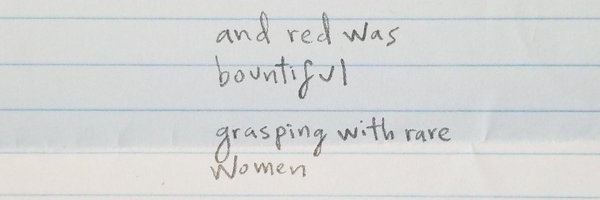 and red was
bountiful
grasping with rare
Women